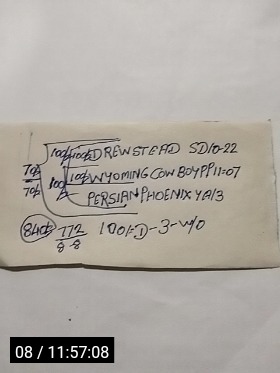 100/- 100/- DREWSTEAD SD10-22
70/- 100/- 100/- WYOMING COWBOY PP11-07
70/- PERSIAN PHOENIX YA13
840/- 772 100/- D-3-W/O
8-8
08 / 11:57:08